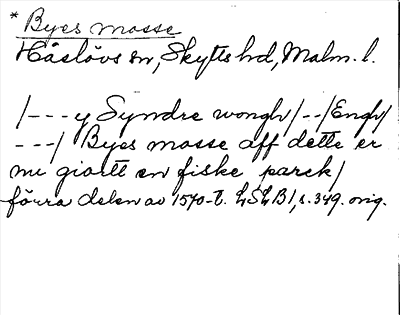 * Byes mosse
Håslövs sn, Skytts hd, Malm. l.
/--- y Syndre wongh/--/Engh/
---/ Byes mosse aff dette er
nu giortt en fiske parck/
förra delen av 1570-t. LSLB1, s. 349. orig.